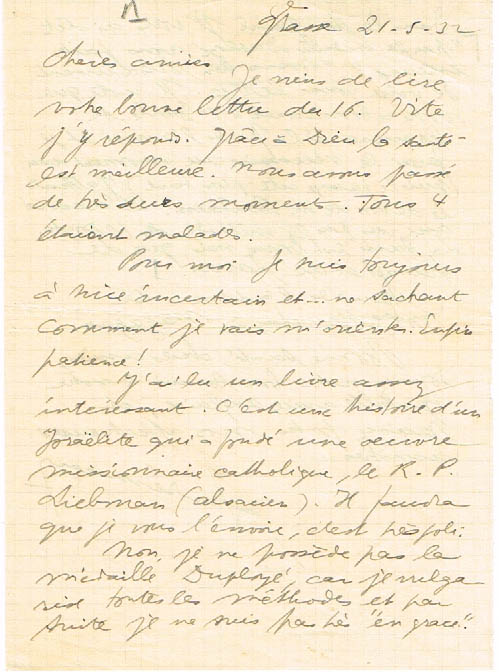 Grasse 21-5-32
Chères amies
Je viens de lire
votre bonne lettre du 16. Vite
j'y réponds. Grâce à Dieu la santé
est meilleure. Nous avons passé
de très durs moments. Tous 4
étaient malades.
Pour moi je suis toujours
à Nice incertain et... ne sachant
comment je vais m'orienter. Enfin
patience!
J'ai lu un livre assez
intéressant. C'est une histoire d'un
Israëlite qui a fondé une oeuvre
missionnaire catholique, le R. P.
Liebman (alsacien). Il faudra
que je vous l'envoie, c'est très joli.
Non, je ne possède pas la
médaille Duployé, car je vulga
rise toutes les méthodes et par
suite je ne suis pas très "en grâce".